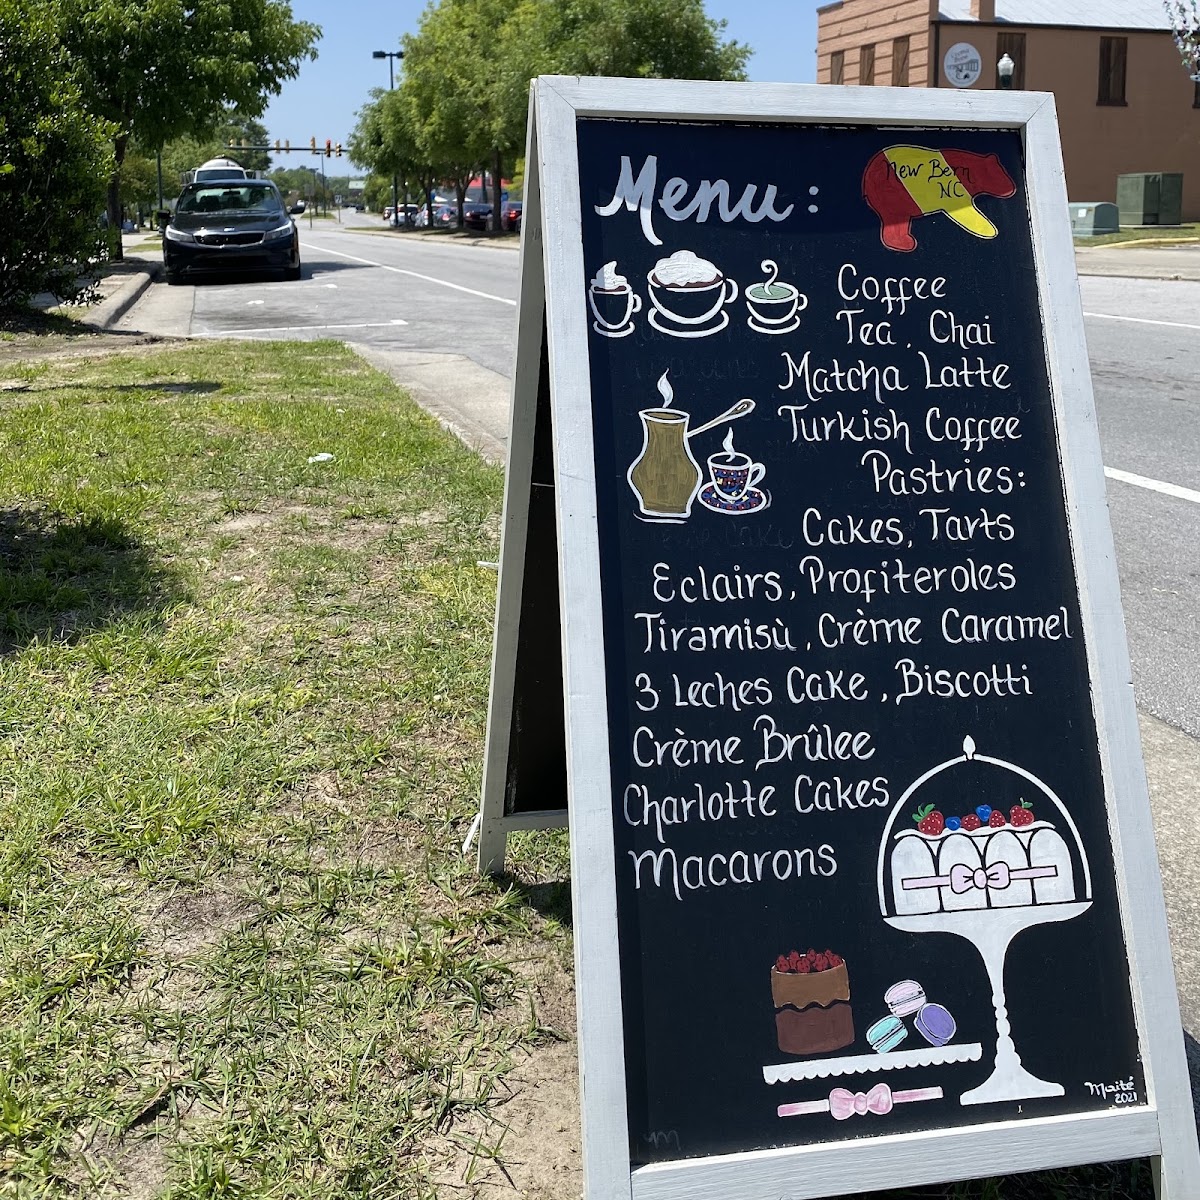 Menu:
New Bern
NC
Coffee
Tea, Chai
Matcha Latte
Turkish Coffee
Pastries:
Cakes, Tarts
Eclairs, Profiteroles
Tiramisù, Crème Caramel
3 Leches Cake, Biscotti
Crème Brûlee
Charlotte Cakes
Macarons
Maité
2021
m